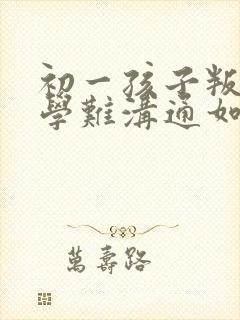 初一孩子叛
學難溝通如
萬壽路